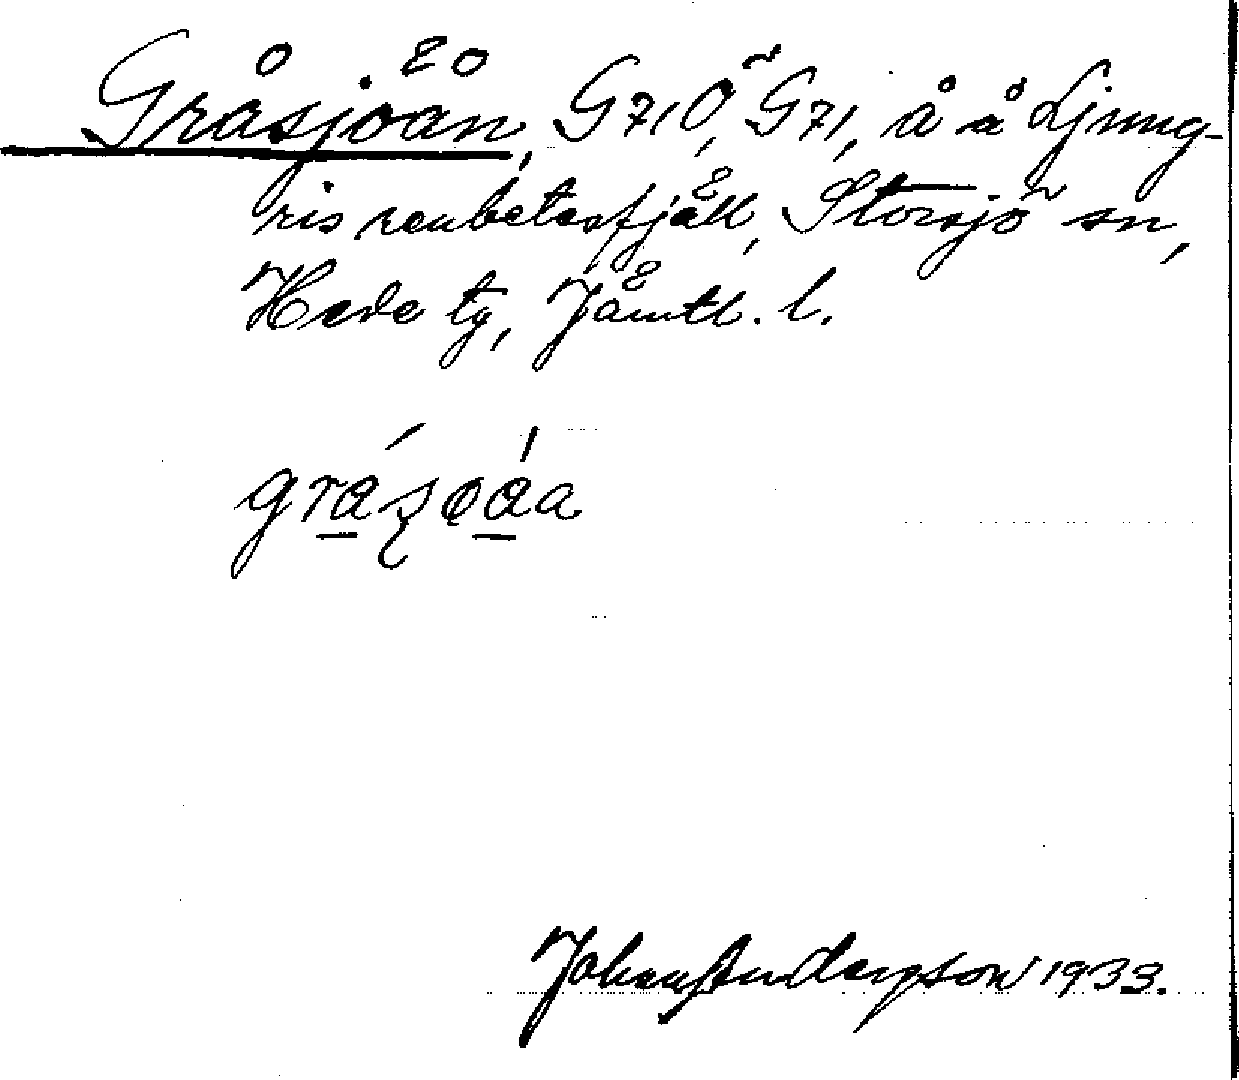 Gråsjöån, G71Ö, G71, å å Ljung-
ris renbetesfjäll, Storsjö sn,
Hede tg, Jämtl. l.
Johan Anderzson 1933.